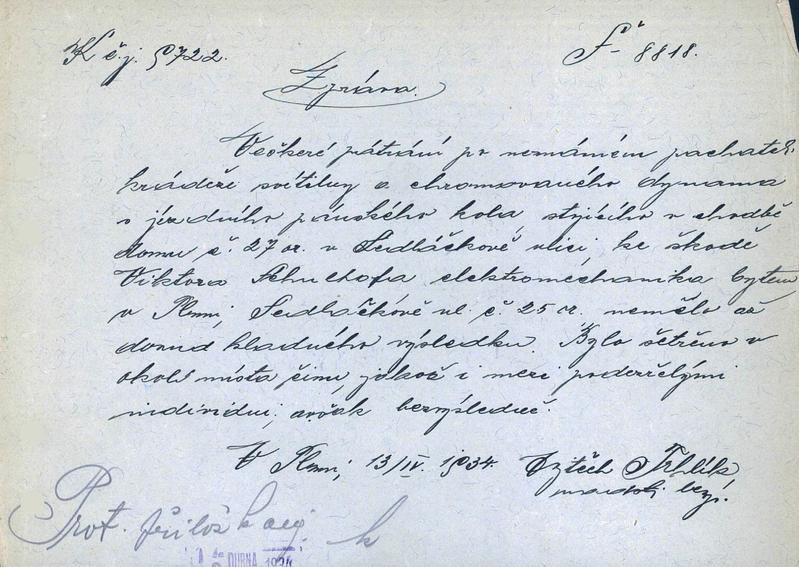 K č.j. 9722.
Š- 8818.
Zpráva.
Veškeré pátrání po neznámém pachateli
krádeže svítilny a chromovaného dynama
s jízdního pánského kola, stojícího v chodbě
domu č. 27 or. v Sedláčkově ulici, ke škodě
Viktora Schulhofa elektromechanika bytem
v Plzni, Sedláčkově ul. č. 25 or. nemělo až
dosud kladného výsledku. Bylo šetřeno v
okolí místa činu, jakož i mezi podezřelými
individui, avšak bezvýsledně.
V Plzni, 13/IV. 1934.
Prot. přilož k
DUBNA 1934